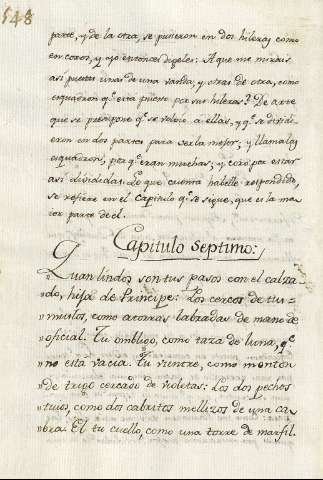 548
parte, y de la otra, se pusieron en dos hileras como
en coros, y ago entonces dezeles: A que me mirais
asi puestas unas de una vanda, y otras de otra, como
esquadron q.e está puesto por sus hileras? De arte
que se presupone q.e se volvio a ellas, y q.e se dividi-
eron en dos partes para verla mejor; y llamalas
esquadron, por q.e eran muchas; y coro por estar
asi divididas. Lo que cuenta haberle respondido,
se refiere en el Capitulo q.e se sigue, que es la ma-
ior parte de el.
Capitulo Septimo:
Quan lindos son tus pasos con el calza-
do, hija de Principe: Los cercos de tus
muslos, como axorcas labradas de mano de
oficial. Tu ombligo, como taza de luna, q.e
no esta vacia. Tu vientre, como montón
de trigo cercado de violetas: Los dos pechos
tuios, como dos cabritos mellizos de una ca-
bra. El tu cuello, como una torre de marfil.